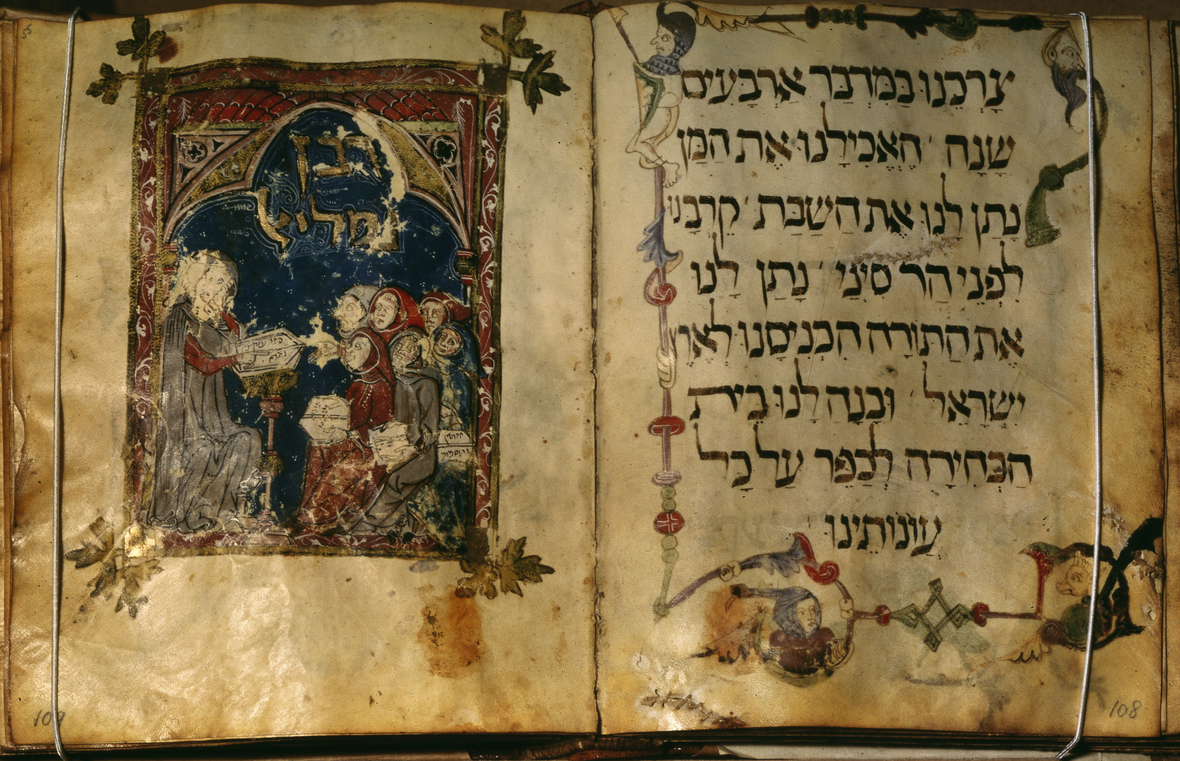 צָרְכֵנוּ בַּמִּדְבָּר אַרְבָּעִים
שָׁנָה הֶאֱכִילָנוּ אֶת הַמָּן
נָתַן לָנוּ אֶת הַשַּׁבָּת קֵרְבָנוּ
לִפְנֵי הַר סִינַי נָתַן לָנוּ
אֶת הַתּוֹרָה הִכְנִיסָנוּ לְאֶרֶץ
יִשְׂרָאֵל וּבָנָה לָנוּ בֵּית
הַבְּחִירָה לְכַפֵּר עַל כָּל
עֲוֹנוֹתֵינוּ
108
רבן
גמליאל
109